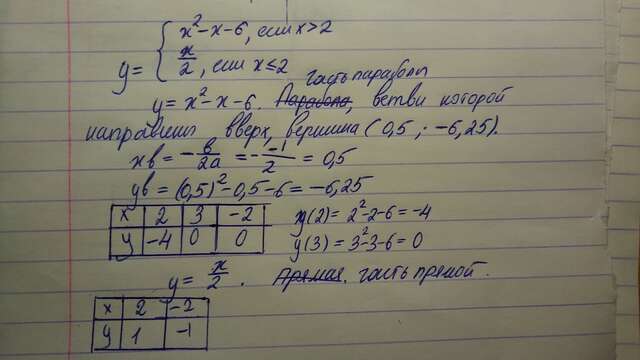 y = { x² - x - 6, если x > 2
x/2, если x ≤ 2
часть параболы
y = x² - x - 6. Парабола, ветви которой
направлены вверх, вершина (0,5 ; -6,25).
xв = - в/2a = - -1/2 = 0,5
yв = (0,5)² - 0,5 - 6 = -6,25
x 2 3 -2
y(2) = 2² - 2 - 6 = -4
y -4 0 0
y(3) = 3² - 3 - 6 = 0
y = x/2 . Прямая. часть прямой.
x 2 -2
y 1 -1